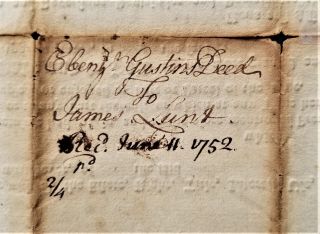 Ebenr. Gustins Deed
To
James Lunt.
Recd. June 11. 1752.
pd
2/4